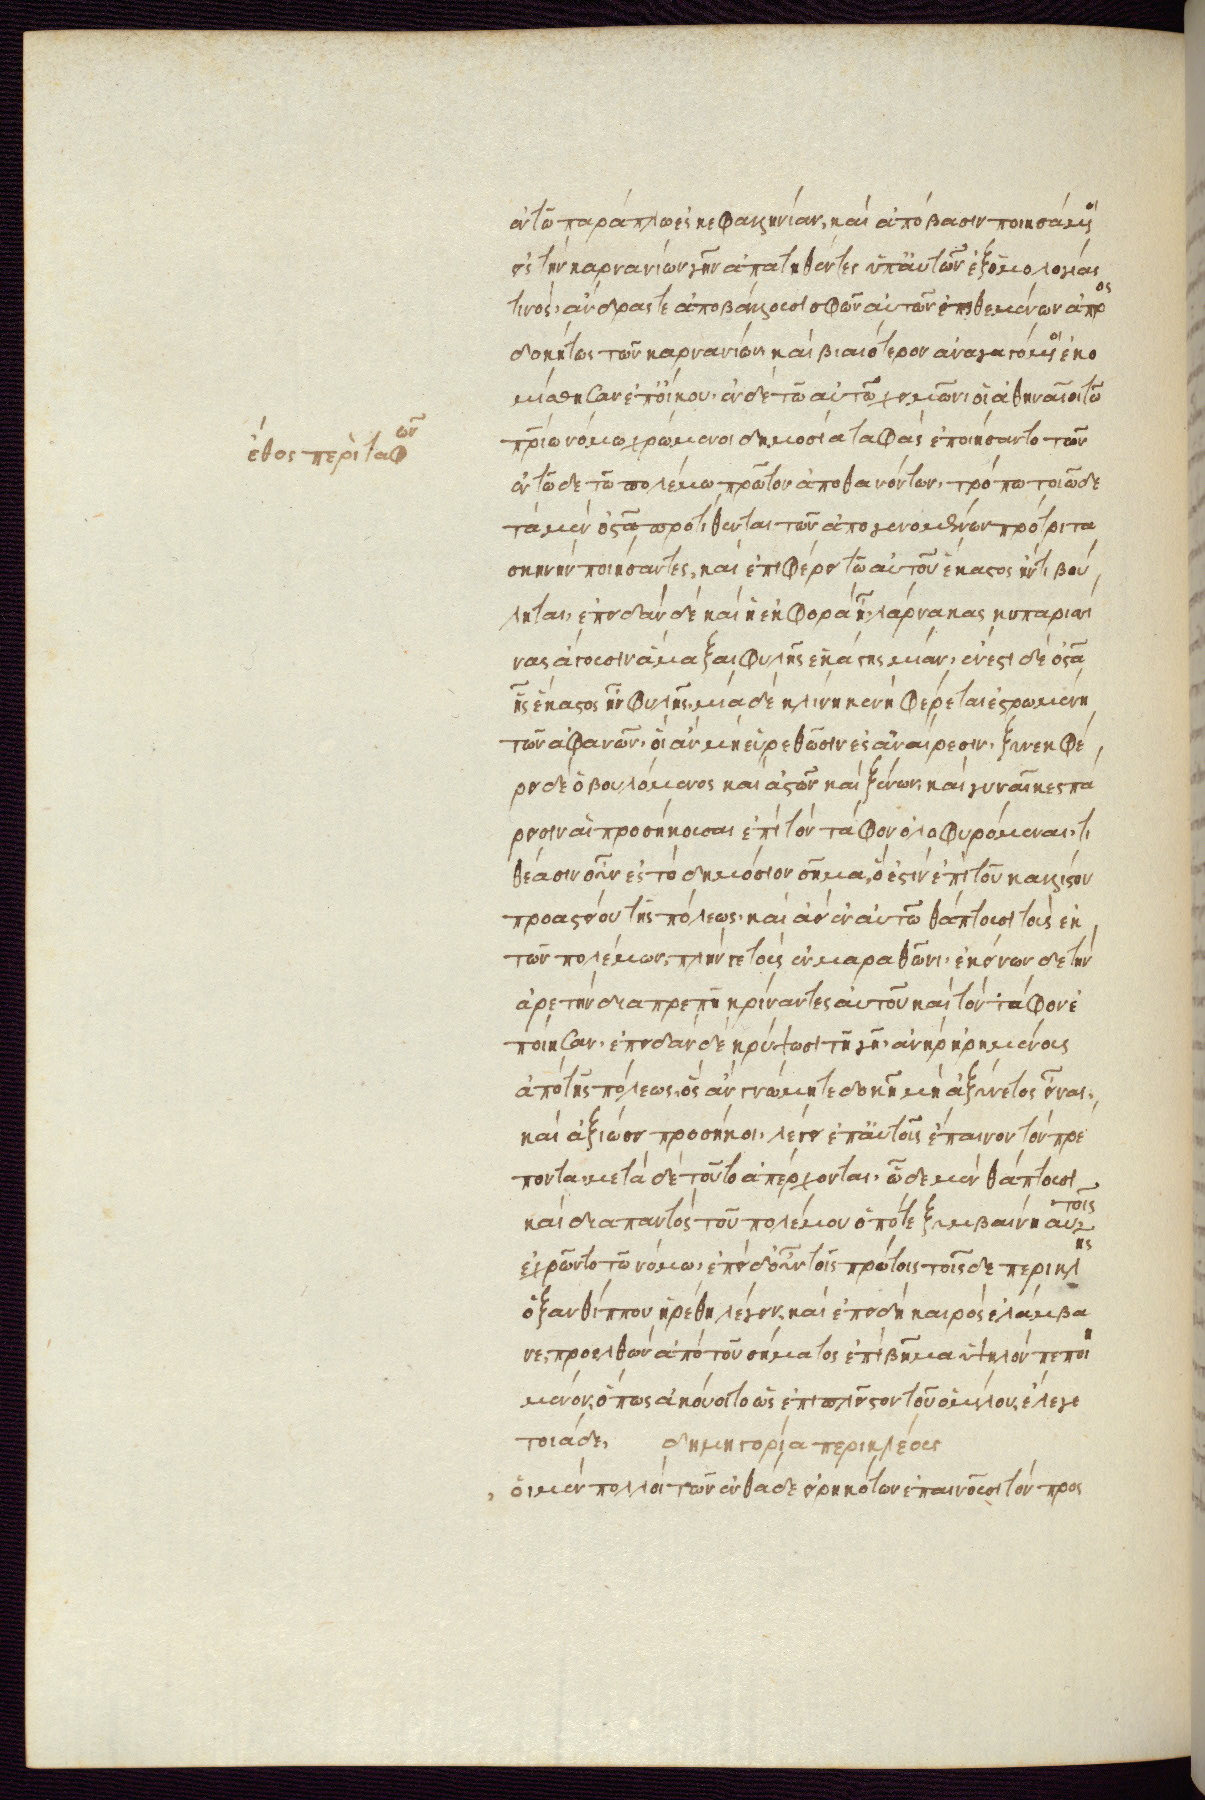 ἐν τῶ παράπλω ἐς κεφαλληνίαν, καὶ ἀπόβασιν ποιησάμενοι
ἐς τὴν κρανίων γῆν ἀπατηθέντες ὑπ' αὐτῶν ἐξ ὁμολογίας
τινός· ἄνδρας τε ἀποβάλλουσι σφῶν αὐτῶν ἐπιθεμένων ἀπροσ
δοκήτως τῶν κρανίων· καὶ βιαιότερον ἀναγαγόμενοι ἐκο
μίσθησαν ἐπ' οἴκου· ἐν δὲ τῶ αὐτῶ χειμῶνι οἱ ἀθηναῖοι τῶ
ἔθος περὶ ταφῶν
πατρίω νόμω χρώμενοι δημοσία ταφὰς ἐποιήσαντο τῶν
ἐν τῶδε τῶ πολέμω πρῶτον ἀποθανόντων· τρόπω τοιῶδε
τὰ μὲν ὀστᾶ προτίθενται τῶν ἀπογενομένων πρότριτα
σκηνὴν ποιήσαντες, καὶ ἐπιφέρει τῶ αὐτοῦ ἕκαστος ἤν τι βού
ληται· ἐπειδὰν δὲ καὶ ἡ ἐκφορὰ ἦ, λάρνακας κυπαρισσί
νας ἄγουσιν ἅμαξαι φυλῆς ἑκάστης μίαν· ἔνεστι δὲ ὀστᾶ
ἧς ἕκαστος ἦν φυλῆς. μία δὲ κλίνη κενὴ φέρεται ἐστρωμένη
τῶν ἀφανῶν· οἳ ἂν μὴ εὑρεθῶσιν ἐς ἀναίρεσιν· ξυνεκφέ
ρει δὲ ὁ βουλόμενος καὶ ἀστῶν καὶ ξένων· καὶ γυναῖκες πά
ρεισιν αἱ προσήκουσαι ἐπὶ τὸν τάφον ὀλοφυρόμεναι· τι
θέασιν οὖν ἐς τὸ δημόσιον σῆμα, ὅ ἐστιν ἐπὶ τοῦ καλλίστου
προαστείου τῆς πόλεως· καὶ ἀεὶ ἐν αὐτῶ θάπτουσι τοὺς ἐκ
τῶν πολέμων, πλήν γε τοὺς ἐν μαραθῶνι· ἐκείνων δὲ τὴν
ἀρετὴν διαπρεπῆ κρίναντες αὐτοῦ καὶ τὸν τάφον ἐ
ποίησαν· ἐπειδὰν δὲ κρύψωσι τῆ γῆ· ἀνὴρ ἡρημένος
ἀπὸ τῆς πόλεως, ὃς ἂν γνώμη τε δοκῆ μὴ ἀξύνετος εἶναι·
καὶ ἀξιώσει προσήκοι· λέγει ἐπ' αὐτοῖς ἔπαινον τὸν πρέ
ποντα. μετὰ δὲ τοῦτο ἀπέρχονται· ὧδε μὲν θάπτουσι
καὶ διὰ παντὸς τοῦ πολέμου ὁπότε ξυμβαίνη αὐτοῖς
ἐχρῶντο τῶ νόμω· ἐπὶ δ' οὖν τοῖς πρώτοις τοῖσδε περικλῆς
ὁ ξανθίππου ἡρέθη λέγειν, καὶ ἐπειδὴ καιρὸς ἐλάμβα
νε, προελθὼν ἀπὸ τοῦ σήματος ἐπὶ βῆμα ὑψηλὸν πεποιη
μένον, ὅπως ἀκούοιτο ὡς ἐπὶ πλεῖστον τοῦ ὁμίλου, ἔλεγε
τοιάδε, δημηγορία περικλέους
οἱ μὲν πολλοὶ τῶν ἐνθάδε εἰρηκότων ἐπαινοῦσι τὸν προσ